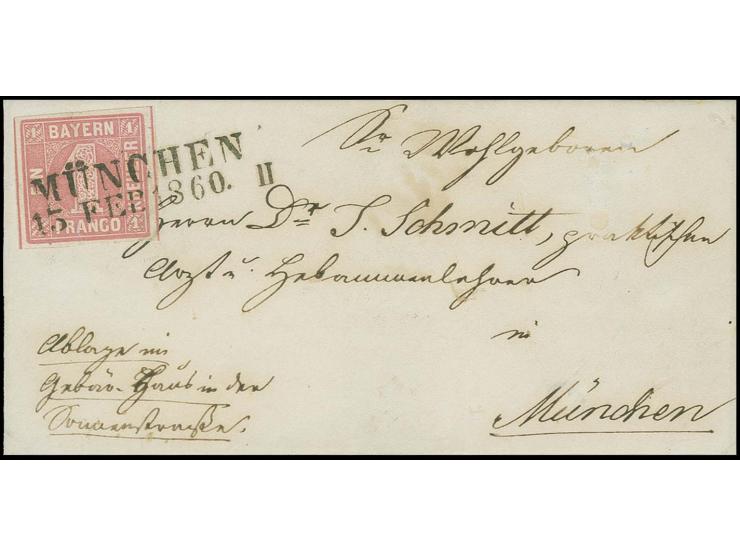 BAYERN
1 1
EIN KREUZER
1 1
FRANCO
MÜNCHEN
15. FEB. 1860. II
Sr Wohlgeboren
Herrn Dr J. Schmitt, praktischen
Arzt u. Hebammenlehrer
in
München
Ablage im
Gebär-Haus in der
Sonnenstraße.